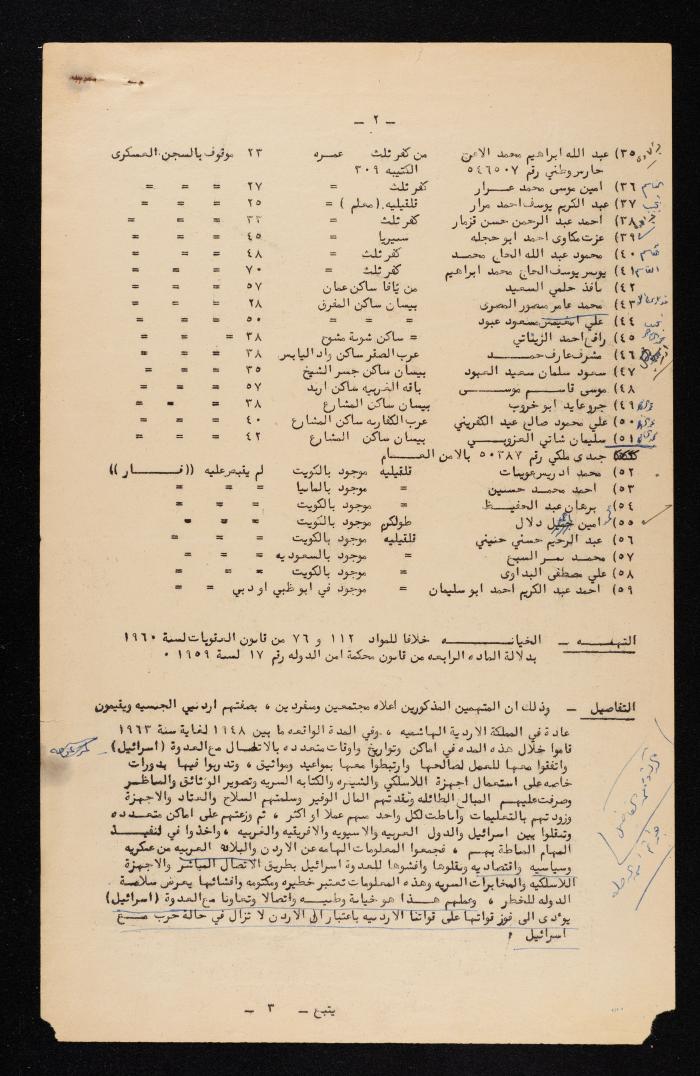 — ٢ —
٣٥) عبد الله ابراهيم محمد الاعرج من كفر ثلث عمره ٢٣ موقوف بالسجن العسكري
حارس وطني رقم ٥٤٦٥٠٧ الكتيبه ٣٠٩
٣٦) امين موسى محمد عـــرار كفر ثلث = ٢٧ = = =
٣٧) عبد الكريم يوسف احمد مرار قلقيليه (معلم) = ٢٥ = = =
٣٨) احمد عبد الرحمن حسن قزمار كفر ثلث = ٣٣ = = =
٣٩) عزت مكاوى احمد ابو حجله سنيريا = ٤٥ = = =
٤٠) محمود عبد الله الحاج محمـد كفر ثلث = ٤٨ = = =
٤١) يوسف يوسف الحاج محمد ابراهيم كفر ثلث = ٧٠ = = =
٤٢) نافذ حلمي السعيد من يافا ساكن عمان ٥٧ = = =
٤٣) محمد عامر منصور المصرى بيسان ساكن المفرق ٢٨ = = =
٤٤) علي مسعود عبود = = = ٥٠ = = =
٤٥) رافع احمد الزيناتي = ساكن شونة مشوح ٣٨ = = =
٤٦) مشرف عارف حمـــد عرب الصقر ساكن واد اليابس ٣٨ = = =
٤٧) سعود سلمان سعيد العبود بيسان ساكن جسر الشيخ ٣٥ = = =
٤٨) موسى قاســم موســـى باقه الغربيه ساكن اربد ٥٧ = = =
٤٩) جرو عايد ابو خروب بيسان ساكن المشارع ٣٨ = = =
٥٠) علي محمود صالح عبد الكفريني عرب الكفارنه ساكن المشارع ٤٠ = = =
٥١) سليمان شاتي العزوبـــي بيسان ساكن المشارع ٤٢ = = =
جندى ملكي رقم ٥٠٣٨٧ بالامن العـــام
٥٢) محمد ادريس عوينات قلقيليه موجود بالكويت لم يقبض عليه ((فـــار))
٥٣) احمد محمـد حسـنين = موجود بالمانيا = = =
٥٤) برهان عبد الحفيـــظ = موجود بالكويت = = =
٥٥) امين دلال طولكرم موجود بالكويت = = =
٥٦) عبد الرحيم حسني حنيني قلقيليه موجود بالكويت = = =
٥٧) محمـد نمر السبع = موجود بالسعوديه = = =
٥٨) علي مصطفى البداوى = موجود بالكويت = = =
٥٩) احمد عبد الكريم احمد ابو سليمان = موجود في ابو ظبي او دبي = =
التهمـــه — الخيانـــــه خلافا للمواد ١١٢ و ٧٦ من قانون العقوبات لسنة ١٩٦٠
بدلالة الماده الرابعه من قانون محكمة امن الدوله رقم ١٧ لسنة ١٩٥٩ ٠
التفاصيل — وذلك ان المتهمين المذكورين اعلاه مجتمعين ومنفردين ، بصفتهم اردنيي الجنسيه ويقيمون
عادة في المملكة الاردنية الهاشميه ، وفي المدة الواقعه ما بين ١٩٤٨ لغاية سنة ١٩٦٣
قاموا خلال هذه المده في اماكن وتواريخ واوقات متعدده بالاتصـال مع العدوة (اسرائيل)
واتفقوا معها للعمل لصالحها وارتبطوا معها بمواعيد ومواثيق ، وتدربوا فيها بدورات
خاصه على استعمال اجهزة اللاسلكي والشيفره والكتابه السريه وتصوير الوثائق والمناظر
وصرفت عليهــم المبالغ الطائله ونقدتهم المال الوفير وسلمتهم السلاح والعتاد والاجهزة
وزودتهم بالتعليمات واناطت لكل واحد منهم عملا او اكثر ، ثم وزعتهم على اماكن متعـدده
وتنقلوا بين اسرائيل والدول العربيه والاسيويه والافريقيه والغربيه ، واخذوا في تنفيــذ
المهام المناطة بهــم ، فجمعوا المعلومات الهامه عن الاردن والبلاد العربيه من عسكريه
وسياسيه واقتصاديه ونقلوها وافشوها للعدوة اسرائيل بطريق الاتصال المباشر والاجهزة
اللاسلكيه والمخابرات السريه وهذه المعلومات تعتبر خطيره ومكتومه وافشائها يعرض سلامــة
الدوله للخطر ، وعملهم هـــذا هو خيانة وطنيــه واتصالا وتعاونا مع العدوة (اسرائيل)
يؤدى الى فوز قواتها على قواتنا الاردنيه باعتبار ان الاردن لا تزال في حالة حرب مــع
اسرائيل ،
يتبع — ٣ —